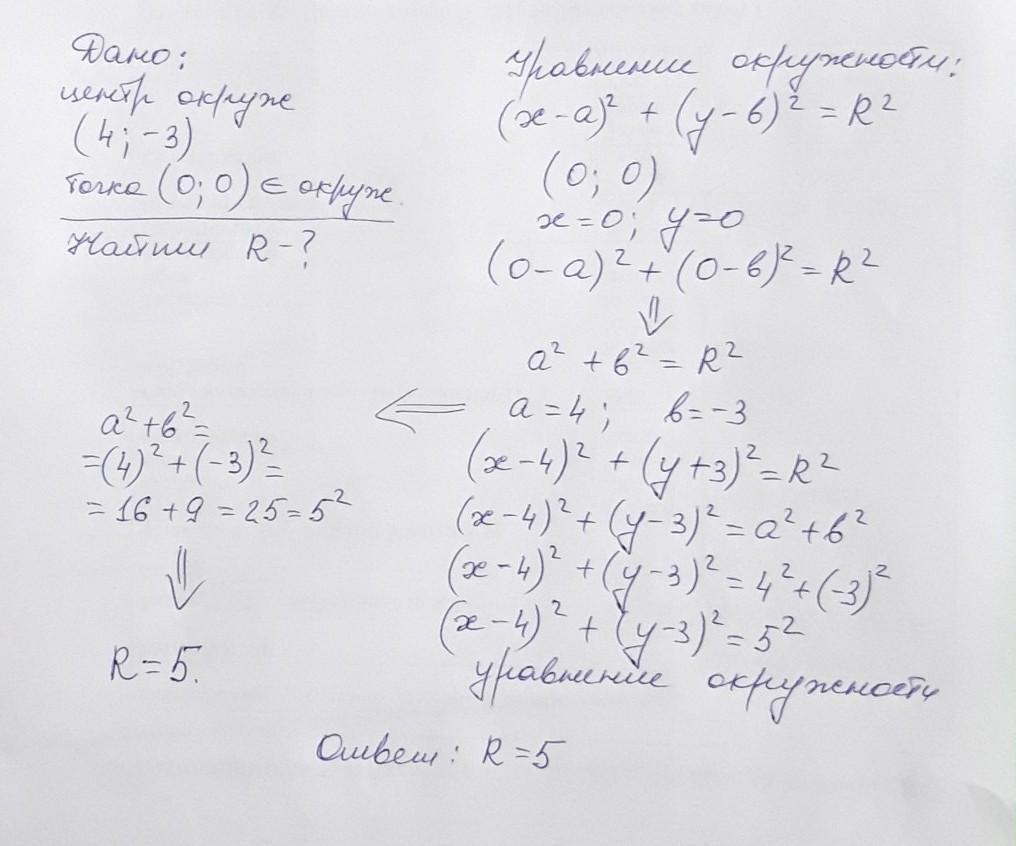 Дано:
центр окруж
(4; -3)
точка (0; 0) ∈ окруж.
Найти R - ?
Уравнение окружности:
(x-a)² + (y-в)² = R²
(0; 0)
x=0; y=0
(0-a)² + (0-в)² = R²
⇓
a² + в² = R²
⇐ a=4; в=-3
(x-4)² + (y+3)² = R²
(x-4)² + (y-3)² = a² + в²
(x-4)² + (y-3)² = 4² + (-3)²
(x-4)² + (y-3)² = 5²
уравнение окружности
a² + в² =
= (4)² + (-3)² =
= 16 + 9 = 25 = 5²
⇓
R = 5.
Ответ: R = 5